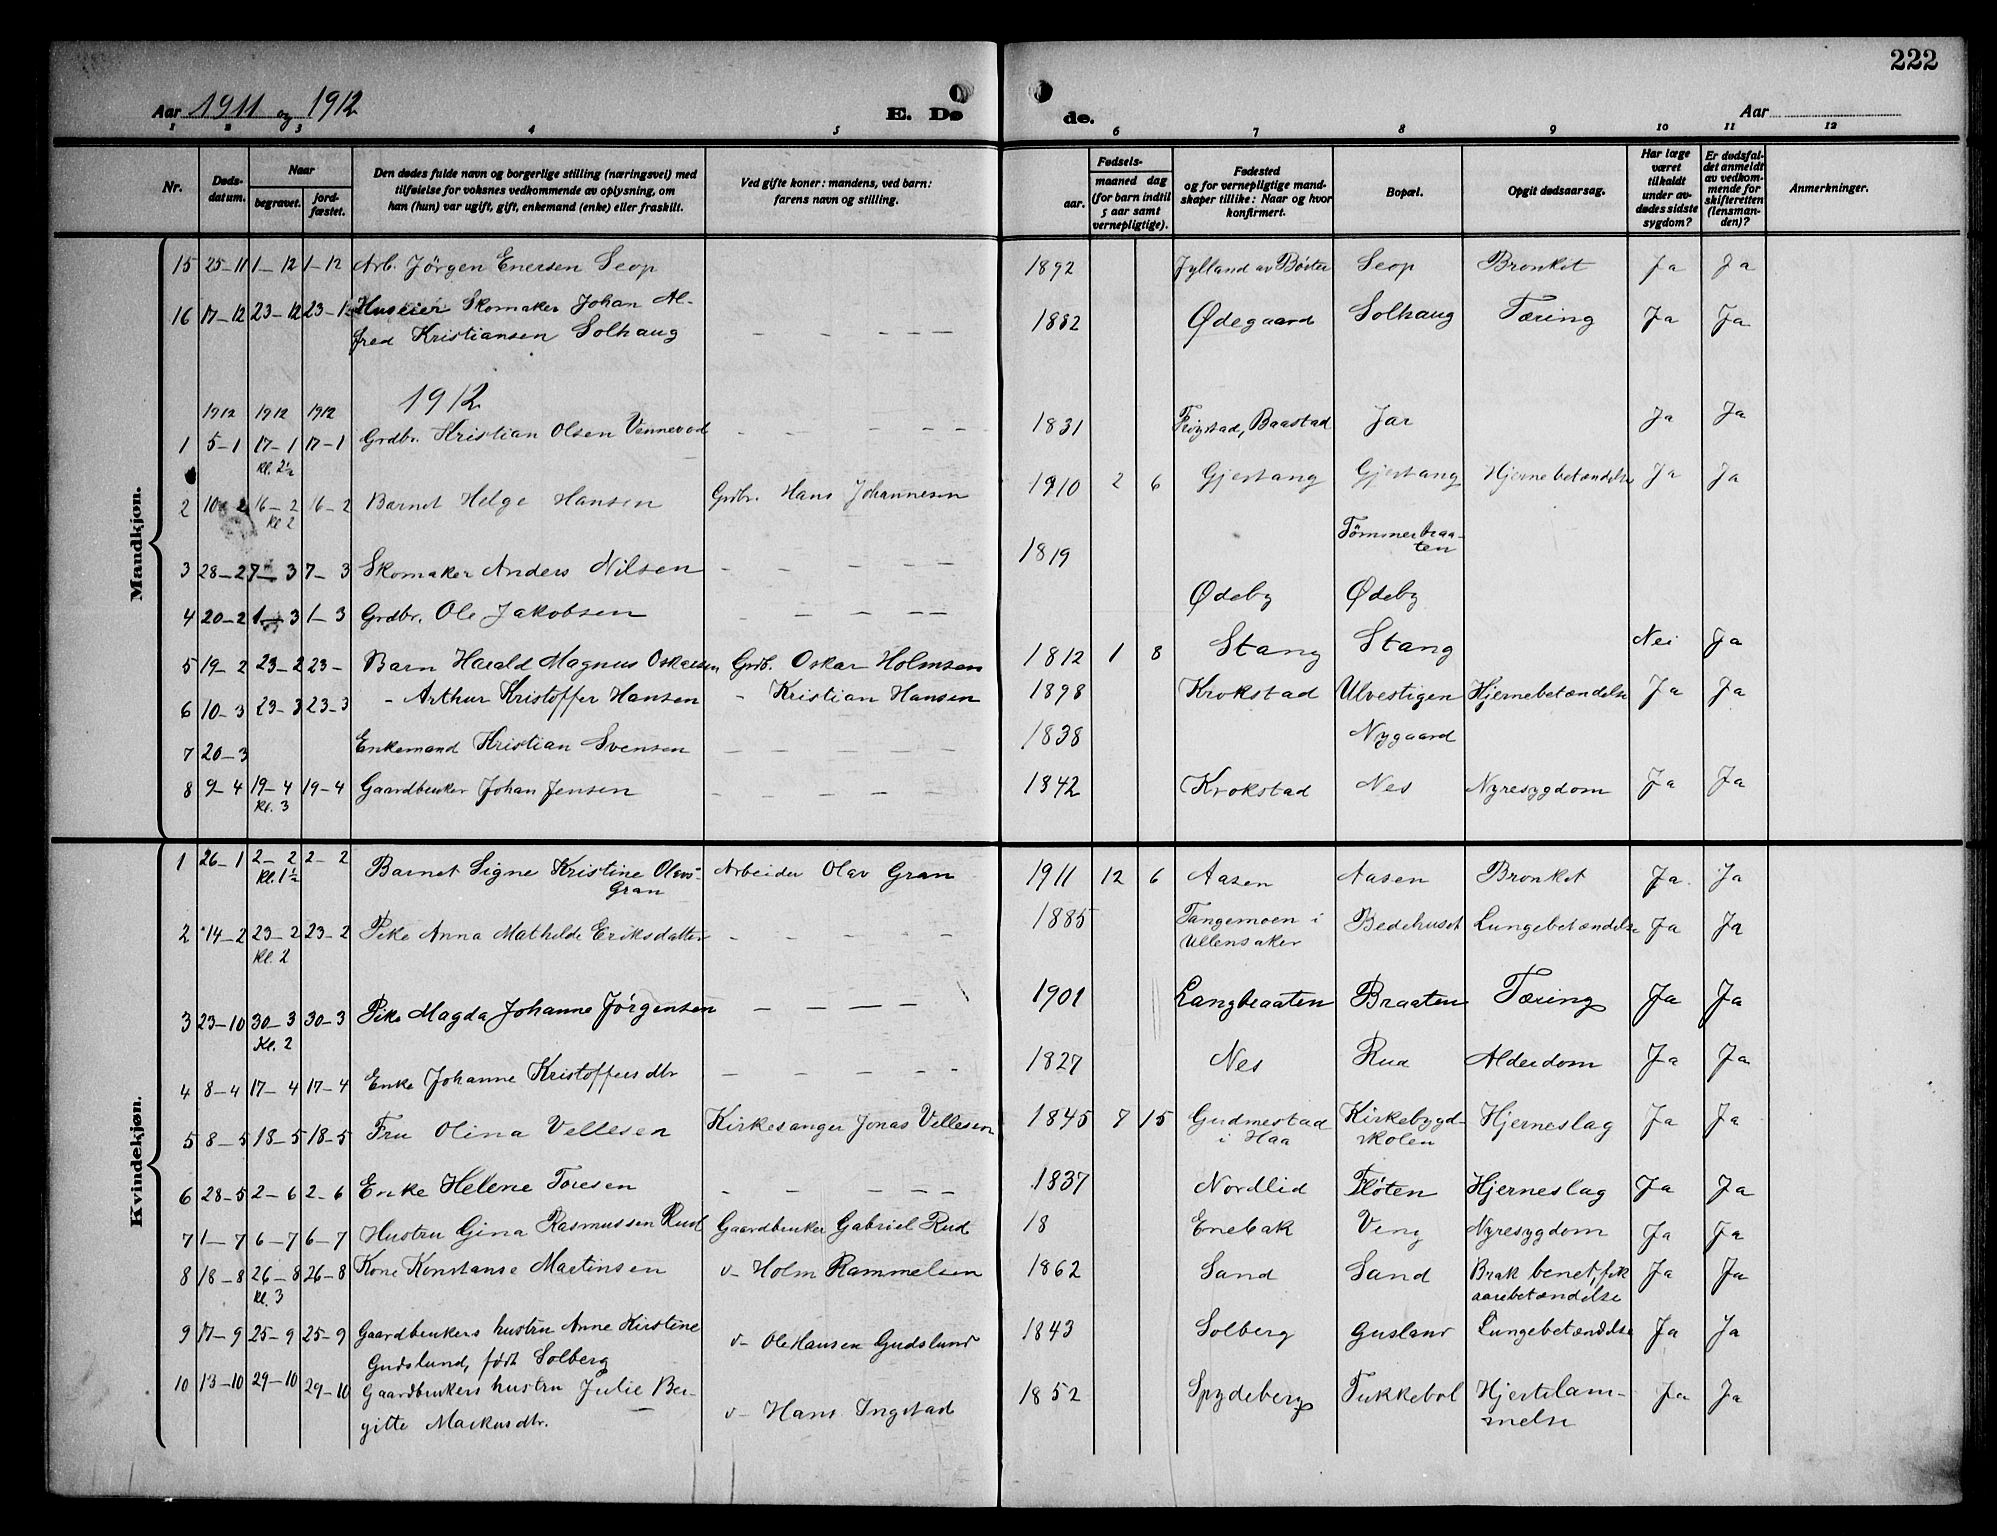 222
Aar 1911 og 1912
E. Dø
de.
Aar
1 2 3 4 5 6 7 8 9 10 11 12
Nr.
Døds-
datum.
Naar
begravet.
jord-
fæstet.
Den dødes fulde navn og borgerlige stilling (næringsvei) med
tilføielse for voksnes vedkommende av oplysning, om
han (hun) var ugift, gift, enkemand (enke) eller fraskilt.
Ved gifte koner: mandens, ved barn:
farens navn og stilling.
Fødsels-
aar.
maaned dag
(for barn indtil
5 aar samt
vernepligtige).
Fødested
og for vernepligtige mand-
skaper tillike: Naar og hvor
konfirmert.
Bopæl.
Opgit dødsaarsag.
Har læge
været
tilkaldt
under av-
dødes sidste
sygdom?
Er dødsfal-
det anmeldt
av vedkom-
mende for
skifteretten
(lensman-
den)?
Anmerkninger.
Mandkjøn.
15 25-11 1-12 1-12 Arb. Jörgen Enersen Seop 1892 Jylland av Böster Seop Bronkit Ja Ja
16 17-12 23-12 23-12 Huseier Skomaker Johan Al-
fred Kristiansen Solhaug — — — — — 1882 Ødegaard Solhaug Tæring Ja Ja
1912
1912 1912 1912
1 5-1 17-1 17-1 Grdbr. Kristian Olsen Vennevod — — — — — 1831 Frøystad, Baastad Jar Ja Ja
kl. 2½
2 10-2 16-2 16-2 Barnet Helge Hansen Grdbr. Hans Johannesen 1910 2 6 Gjestang Gjestang Hjernebetændelse Ja Ja
kl 2
3 28-2 7-3 7-3 Skomaker Anders Nilsen — — — — — 1819 Tömmerbraa-
ten
4 20-2 1-3 1-3 Grdbr. Ole Jakobsen — — — — Ødeby Ødeby
5 19-2 23-2 23- Barn Harald Magnus Oskarsen Grdb. Oskar Holmsen 1812 1 8 Stang Stang Nei Ja
6 10-3 23-3 23-3 - Arthur Kristoffer Hansen - Kristian Hansen 1898 Krokstad Ulvestigen Hjernebetændelse Ja Ja
7 20-3 Enkemand Kristian Svensen — — — — — 1838 Nygaard
8 9-4 19-4 19-4 Gaardbruker Johan Jensen — — — — — 1842 Krokstad Nes Nyresygdom Ja Ja
kl. 3
Kvindekjøn.
1 26-1 2-2 2-2 Barnet Signe Kristine Olavs- Arbeider Olav Gran 1911 12 6 Aasen Aasen Bronkit Ja. Ja
kl. 1½ Gran
2 14-2 23-2 23-2 Pike Anna Mathilde Eriksdatter — — — — — 1885 Tangemoen i
Ullensaker Bedehuset Lungebetændelse Ja Ja
kl. 2
3 23-10 30-3 30-3 Pike Magda Johanne Jörgensen — — — — 1901 Langbraaten Braaten Tæring Ja Ja
Kl. 2
4 8-4 17-4 17-4 Enke Johanne Kristoffersdtr — — — — — 1827 Nes Rud Alderdom Ja Ja
5 8-5 18-5 18-5 Fru Olina Vellesen Kirkesanger Jonas Vellesen 1845 7 15 Gudmestad
i Haa Kirkebygd-
skolen Hjerneslag Ja Ja
6 28-5 2-6 2-6 Enke Helene Toresen — — — — — 1837 Nordlid Flöten Hjerneslag Ja Ja
7 1-7 6-7 6-7 Hustru Gina Rasmussen Rud Gaardbruker Gabriel Rud 18 Enebak Veng Nyresygdom Ja Ja
8 18-8 26-8 26-8 Kone Konstanse Martinsen v- Holm Rammelsen 1862 Sand Sand Brak benet, fik
aarebetændelse Ja Ja
kl. 3
9 17-9 25-9 25-9 Gaardbrukers hustru Anne Kirstine
Gudslund, født Solberg v- Ole Hansen Gudslund 1843 Solberg Gusland Lungebetændelse Ja Ja
10 13-10 29-10 29-10 Gaardbrukers hustru Julie Ber-
gitte Markusdtr. v- Hans Ingstad 1852 Spydeberg Tukkebøl Hjertelam-
melse Ja Ja